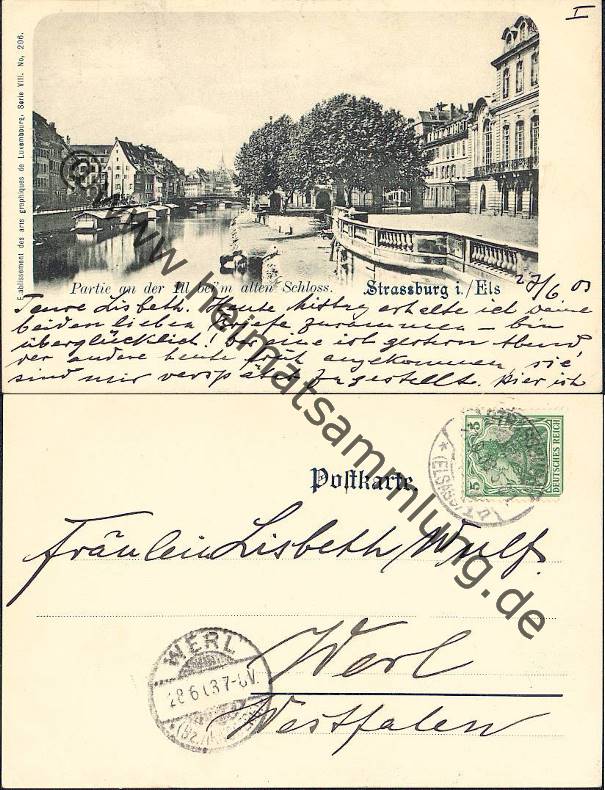 I
Etablissement des arts graphiques de Luxembourg, Serie VIII. No. 206.
Partie an der Ill bei'm alten Schloss. Strassburg i./Els
27/6 03
Teure Lisbeth. Heute Mittag erhalte ich Deine
beiden lieben Briefe zusammen – bin
überglücklich! Der eine ist gestern Abend
der andere heute früh angekommen, sie
sind mir verspätet zugestellt. Hier ist
© www.heimatsammlung.de
Postkarte.
5 5
DEUTSCHES REICH
STRASSBURG
* (ELSASS)
Fräulein Lisbeth Wulf.
WERL
28.6.03 7-8V
Werl
Westfalen